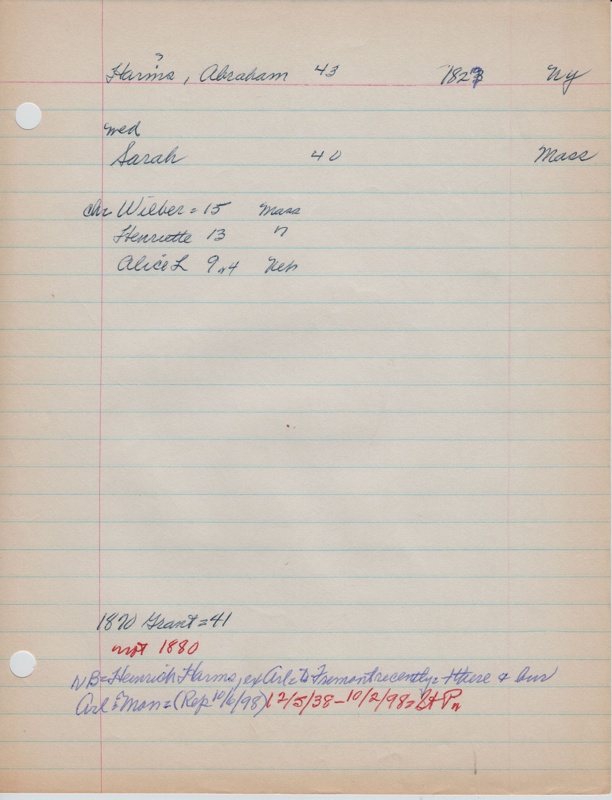 ?
Harms, Abraham 43 1827 NY
wed
Sarah 40 Mass
ch Wilber = 15 Mass
Henriette 13 "
Alice L 9 Neb
1870 Grant = 41
not 1880
NB = Heinrich Harms, ex Arl: to Fremont recently = + there & bur
Arl: Mon = (Rep 10/6/98) 12/5/38 - 10/2/98 =